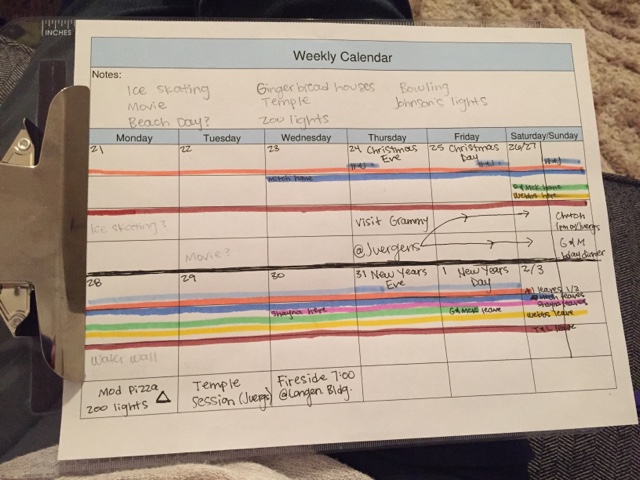 INCHES
Weekly Calendar
Notes:
Ice skating Gingerbread houses Bowling
Movie Temple Johnson's lights
Beach Day? Zoo lights
Monday Tuesday Wednesday Thursday Friday Saturday/Sunday
21 22 23 24 Christmas Eve 25 Christmas Day 26/27
Mitch here
Webbs here
Ice skating? Visit Grammy Church
Movie? @Juergens G&M
28 29 30 31 New Years Eve 1 New Years Day 2/3
leaves 1/3
leaves
Shayna here G & Mck leave leaves
Webbs leave
leave
Water wall
Mod Pizza Temple Fireside 7:00
zoo lights Session (Juergs) @Langen Bldg.